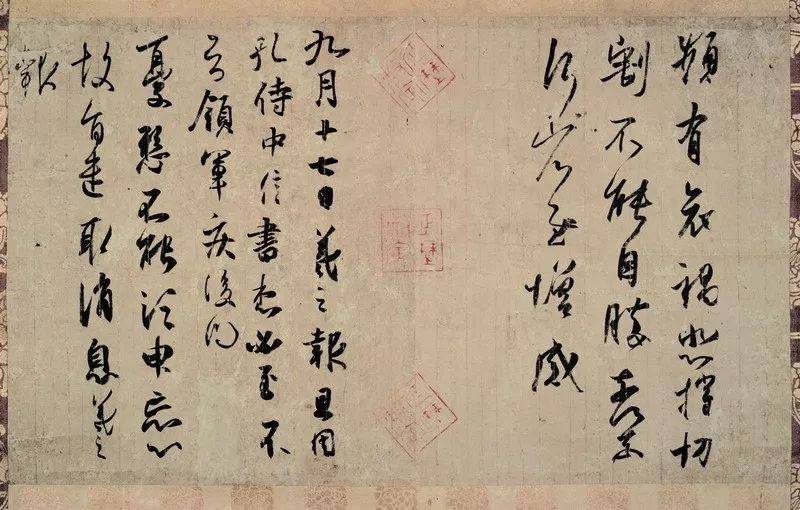 頻有哀禍悲摧切
割不能自勝奈何奈
何省慰增感
九月十七日羲之報且因
孔侍中信書想必至不
知領軍疾後問
憂懸不能須臾忘心
故旨遣取消息羲之
報